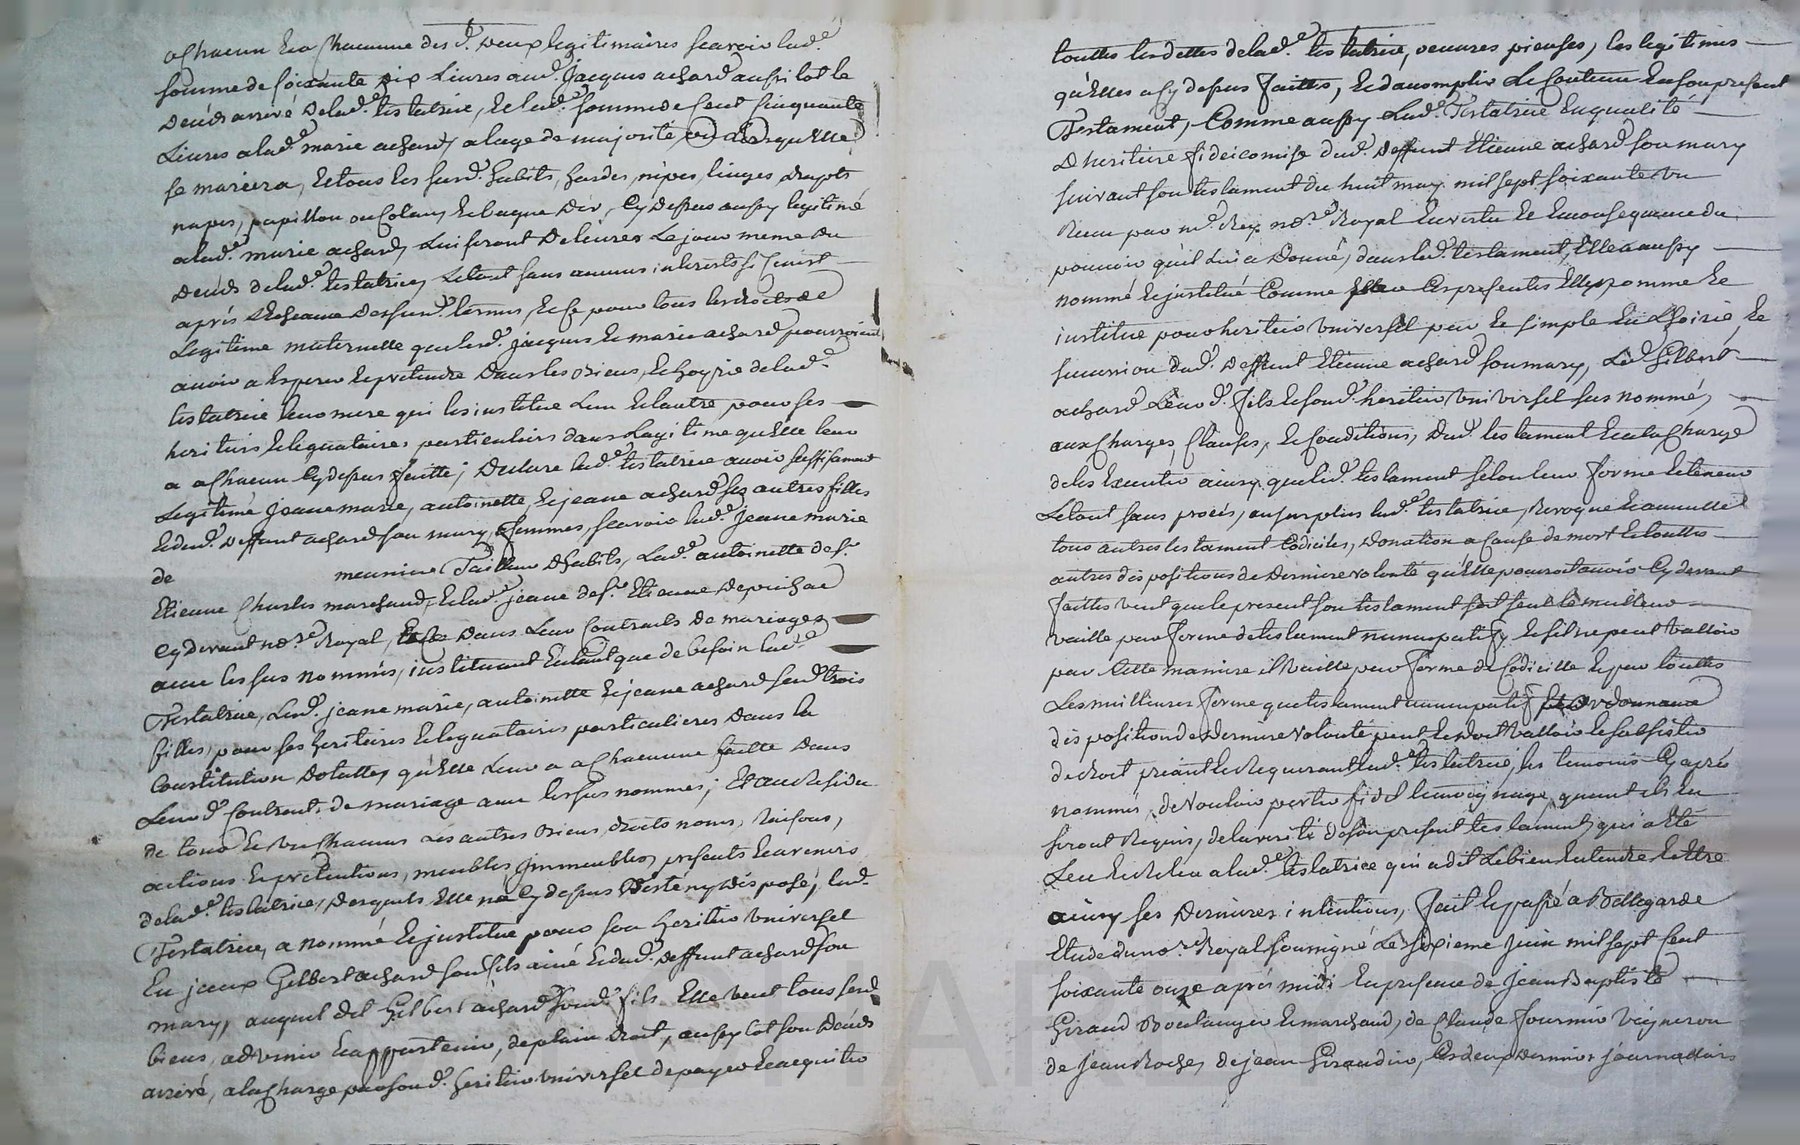 a Chacun Et a Chacunne des d.s deux legitimaires scavoir lad.e
somme de soixante dix Livres aud. Jacques achard aussi tot le
Decéds arrivé De lad.e testatrice, Et lad.e somme de Cent Cinquante
Livres a lad.e marie achard, a lage de majorité ou lorsquelle
se mariera, Et tous les susd. habits, hardes, nipes, linges, draps
napes, papillon ou Colant Et bague Dor, Cy Dessus aussy legitimé
a lad.e marie achard, Lui seront Delivrés Le jour meme du
Decéds de lad.e testatrice, Le tout sans aucuns interests si Ce nest
aprés L'Echeance Des susd. termes, Et Ce pour tous les droits de
Legitime maternelle que lesd. jacques Et marie achard pourroient
avoir a Esperer Et prétendre Dans les Biens, Et hoyrie de lad.e
testatrice leur mere qui les institue Lun Et lautre pour ses
heritiers Et legataires particuliers dans La legitime quElle leur
a a Chacun Cy dessus faitte; Declare lad.e testatrice avoir suffisament
Legitimé Jeane marie, antoinette, Et jeane achard ses autres filles
Et dud. Deffunt achard son mary, femmes, scavoir lad.e Jeane marie
de meunier Tailleur D'habits, Lad.e antoinette de s.r
Etienne Charles marchand, Et lad.e jeane de s.r Etienne Depuichac
Cy devant no.re Royal, Dans Leur Contracts de mariages
avec les sus nommés, instituant En tant que de besoin lad.e
Testatrice, Lesd. jeane marie, antoinette Et jeane achard sesd. trois
filles, pour ses heritieres Et legataires particulieres Dans la
Constitution Dotalle, qu'Elle Leur a a Chacunne faitte Dans
Leurd. Contract de mariage avec les sus nommés; Et au Residu
de tous Et un Chacuns Les autres Biens, droits noms, Raisons,
actions Et prétentions, meubles, jmmeubles, presents Et avenirs
de lad.e testatrice, Desquels Elle n'a Cy dessus Disposé, lad.
Testatrice, a nommé Et justitue pour son heritier universel
En jceux Gilbert achard son fils ainé Et dud. Deffunt achard son
mary, auquel dit Gilbert achard sond. fils Elle veut tous sesd.
biens, advenir Et appartenir, de plain Droit, aussy tot son Decéds
arrivé, a la Charge par sond. heritier universel de payer Et acquiter
touttes les dettes de lad.e testatrice, oeuvres pieuses, les legitimes
qu'Elles a Cy dessus faittes, Et daccomplir Le Contenu En son present
Testament, Comme aussy Lad.e Testatrice En qualité
D'heritiere fideicomise dud. Deffunt Etienne achard son mary
suivant son testament du huit may mil sept soixante un
Recu par m.e Rey no.re Royal En vertu Et En Consequence du
pouvoir qu'il Lui a Donné, dans led. testament, Elle a aussy
nommé Et justitué Comme par Ces presentes Elle nomme Et
institue pour heritier universel pur Et simple En L'hoirie, Et
succession dud. Deffunt Etienne achard son mary, Led. Gilbert
achard Leurd. fils Et sond. heritier universel sus nommé,
aux Charges, Clauses, Et Conditions, Dud. testament Et a la Charge
de les Executer ainsy que led. testament selon leur forme Et teneur
Le tout sans procés, au surplus lad.e testatrice, Revoque Et annulle
tous autres testament Codiciles, Donation a Cause de mort Et touttes
autres dispositions de Derniere volonté qu'Elle pouroit avoir Cy devant
faittes veut que le present son testament soit seul le meilleur
vaille par forme de testament nunncupatif, Et sil ne peut valloir
par Cette maniere il vaille par forme de Codicille Et par touttes
Les meilleures forme que testament nunncupatif Et ordonnance
disposition de Derniere volonté peut Et Doit valloir Et subsister
de droit priant Et Requerant lad.e testatrice, les temoins Cy aprés
nommés, de vouloir porter fidel temoignage, quant ils En
seront Requis, de la verité de son present testament, qui a Eté
Leu Et Releu a lad.e testatrice qui a dit Le bien Entendre Et Etre
ainsy ses Dernieres intentions, fait Et passé a Bellegarde
Etude du no.re Royal soussigné Le sixieme juin mil sept Cent
soixante onze aprés midi En presence de Jean Baptiste
Giraud Boulanger Et marchand, de Claude fournier vigneron
de Jean Roche, de jean Girardin, Ces deux Derniers journalliers